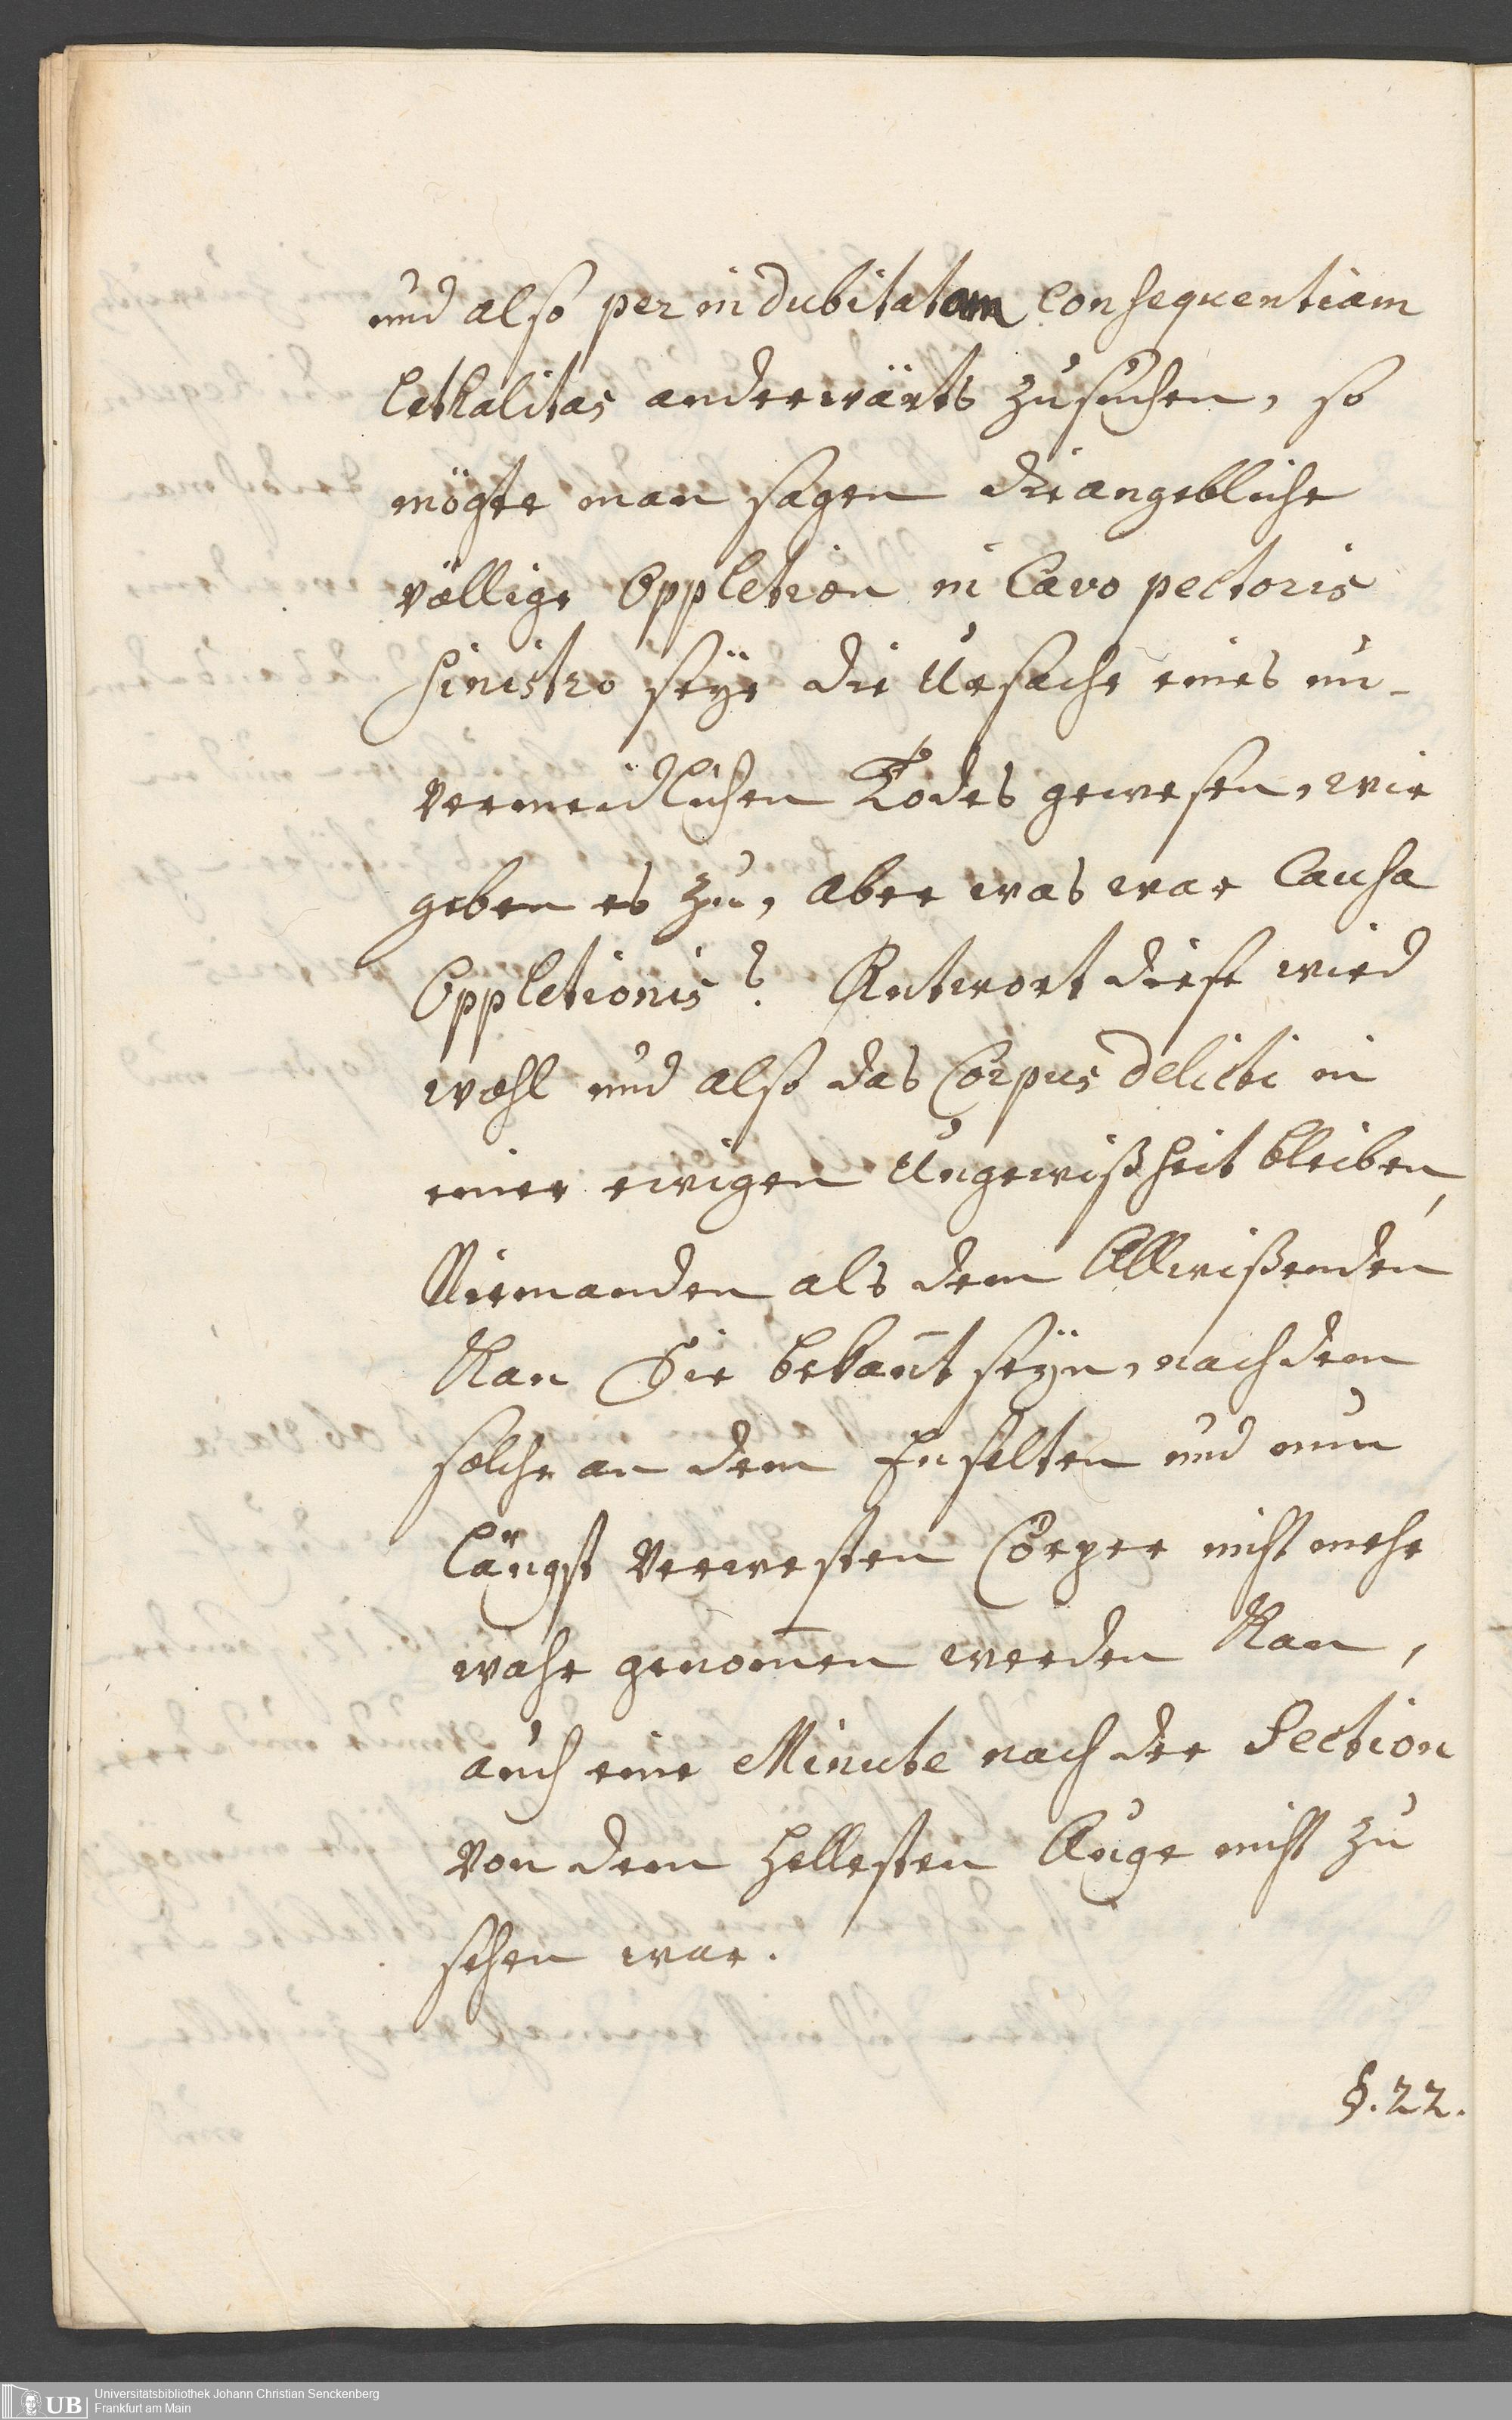 und also per indubitatam Consequentiam
lethalitas anderwärts zu suchen, so
mögte man sagen die angebliche
völlige Oppletion in Cavo pectoris
sinistro seÿe die Ursache eines un-
vermeidlichen Todes gewesen, wir
geben es zu, aber was war Causa
Oppletionis? Antwort diese wird
wohl und also das Corpus delicti in
einer ewigen Ungewißheit bleiben,
Niemanden als dem Allwißenden
Kan Sie bekañt seÿn, nach dem
solche an dem Entselten und nun
längst verwesten Cörper nicht mehr
wahr genom̃en werden Kan,
auch eine Minute nach der Section
von dem hellesten Auge nicht zu
sehen war.
§. 22.
UB
Universitätsbibliothek Johann Christian Senckenberg
Frankfurt am Main